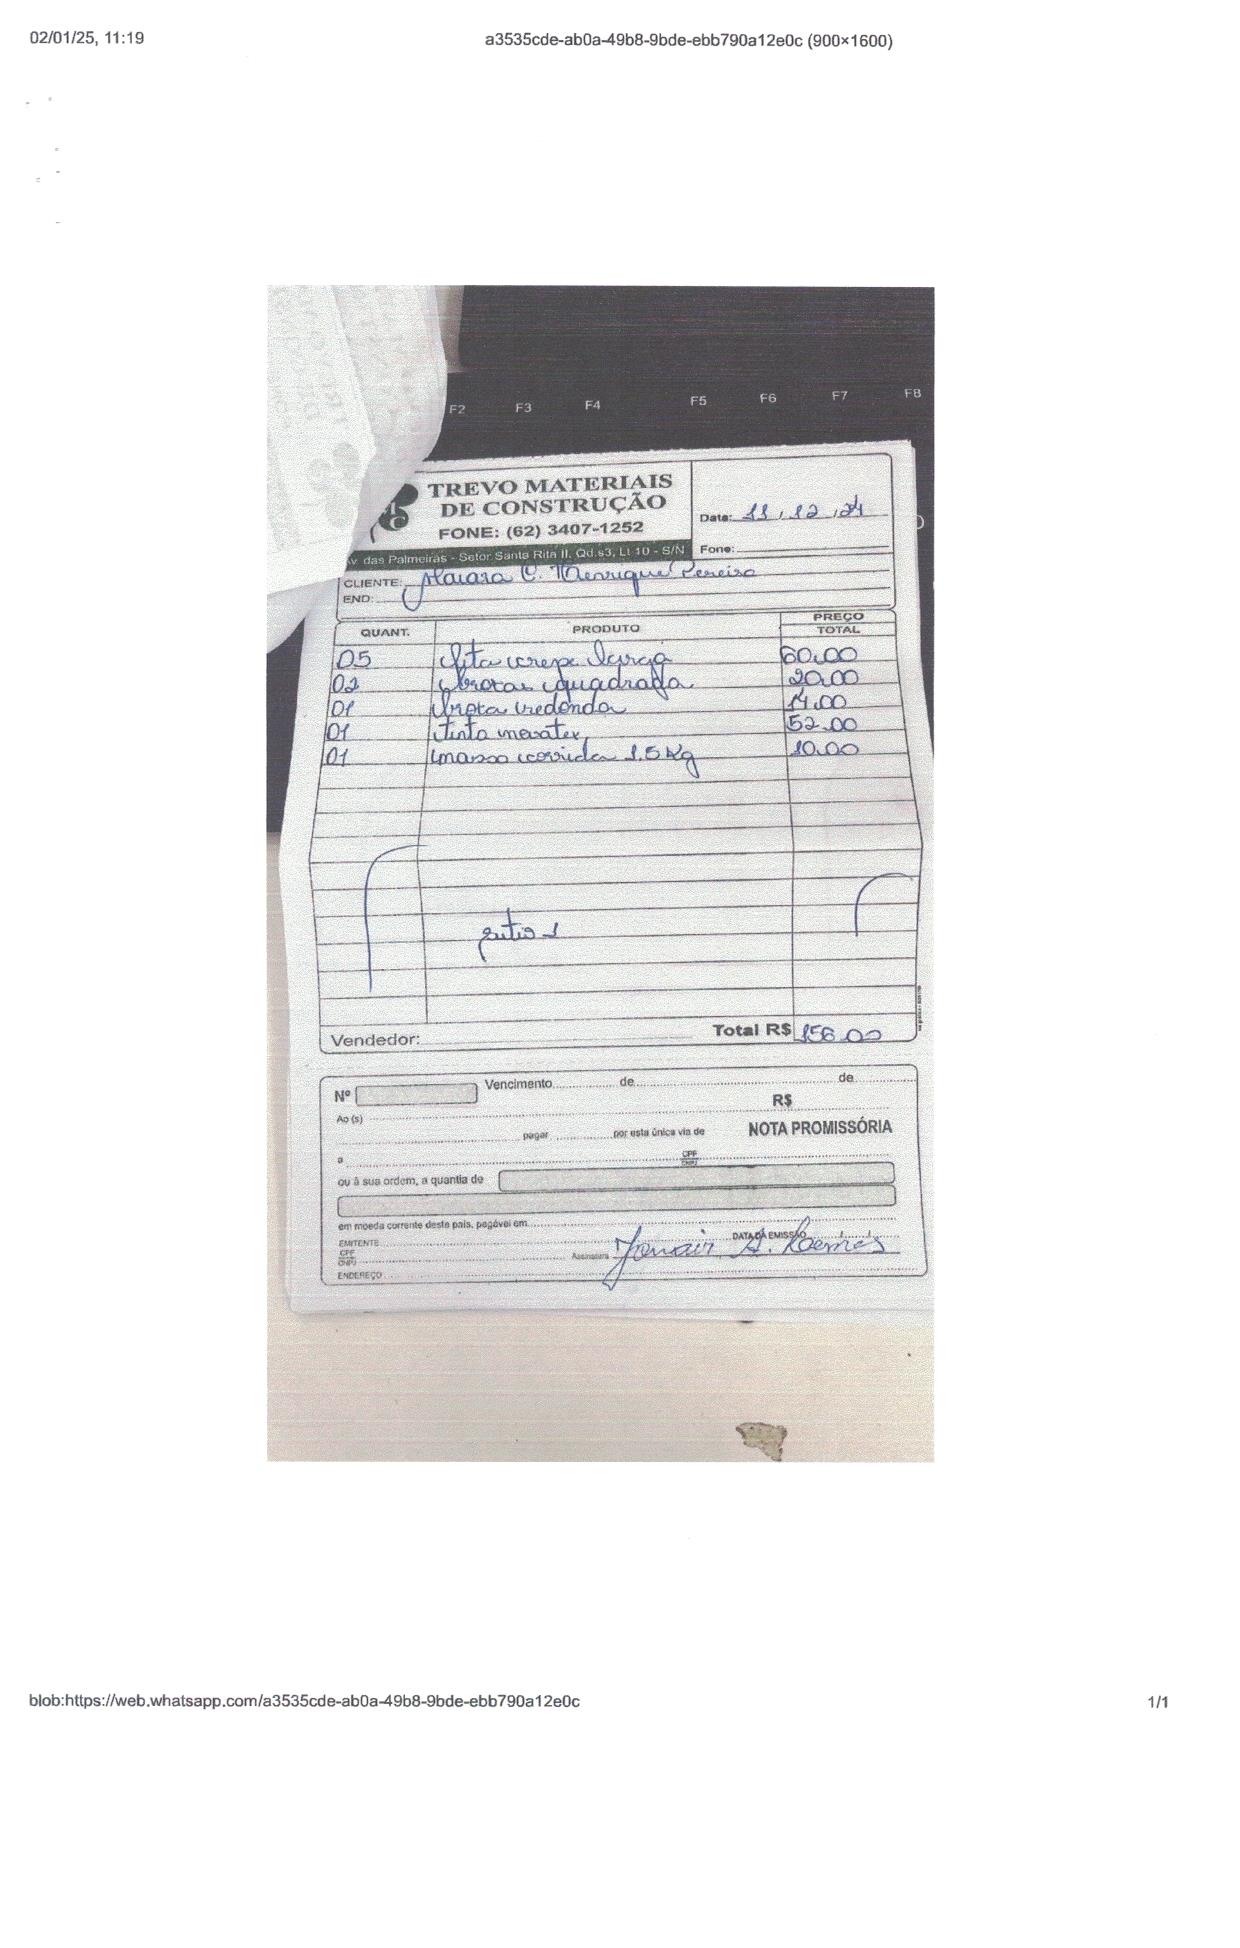 02/01/25, 11:19
a3535cde-ab0a-49b8-9bde-ebb790a12e0c (900×1600)
F2 F3 F4 F5 F6 F7 F8
TREVO MATERIAIS
DE CONSTRUÇÃO
FONE: (62) 3407-1252
Av. das Palmeiras - Setor Santa Rita II, Qd.s3, Lt 10 - S/N
Data: 11/12/24
Fone:
CLIENTE: Maiara C. Henrique Pereira
END:
QUANT. PRODUTO PREÇO TOTAL
05 fita crepe larga 60,00
02 broxas quadrada 20,00
01 broxa redonda 14,00
01 tinta 52,00
01 massa corrida 1.5 Kg 10,00
Vendedor: Total R$ 156,00
Nº Vencimento de de
R$
Ao (s)
pagar por esta única via de NOTA PROMISSÓRIA
a CPF CNPJ
ou à sua ordem, a quantia de
em moeda corrente deste país, pagável em
EMITENTE DATA DA EMISSÃO
CPF CNPJ Assinatura
ENDEREÇO
blob:https://web.whatsapp.com/a3535cde-ab0a-49b8-9bde-ebb790a12e0c
1/1